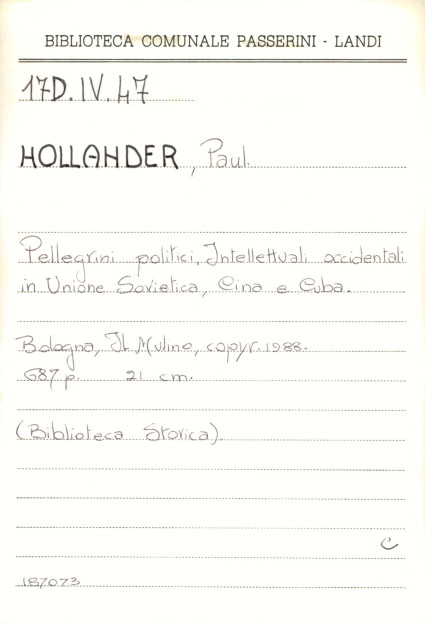 BIBLIOTECA COMUNALE PASSERINI - LANDI
17D.IV.47
HOLLANDER, Paul.
Pellegrini politici, Intellettuali occidentali
in Unione Sovietica, Cina e Cuba.
Bologna, Il Mulino, copyr. 1988.
687 p. 21 cm.
(Biblioteca Storica).
C
187073